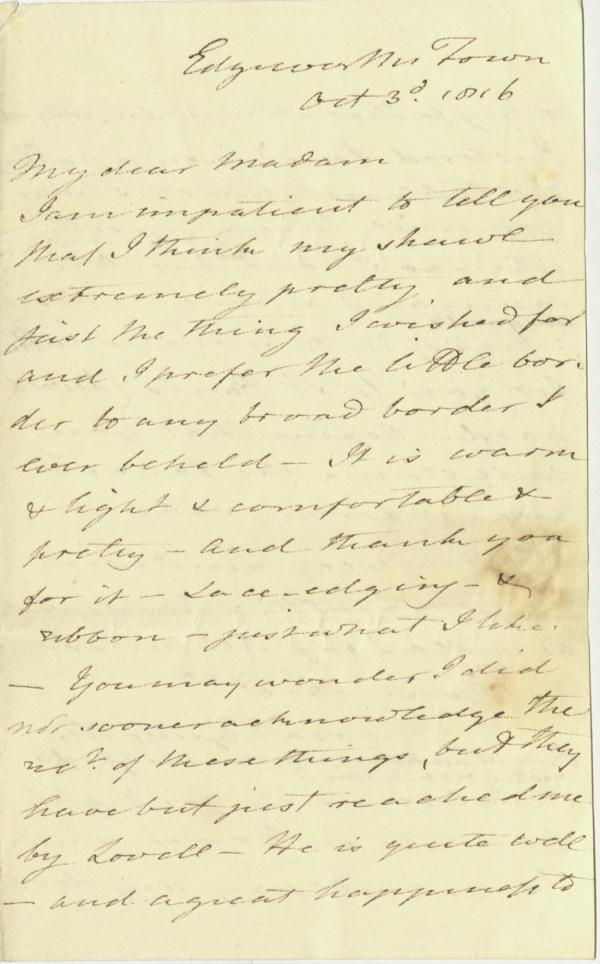 Edgeworths Town
Oct 3d. 1816
My dear Madam
I am impatient to tell you
that I think my shawl
extremely pretty and
just the thing I wished for
and I prefer the little bor-
der to any broad border I
ever beheld – It is warm
& light & comfortable &
pretty – and thank you
for it – Lace-edging – &
ribbon – just what I like.
– You may wonder I did
not sooner acknowledge the
rect. of these things, but they
have but just reached me
by Lovell – He is quite well
– and a great happiness to